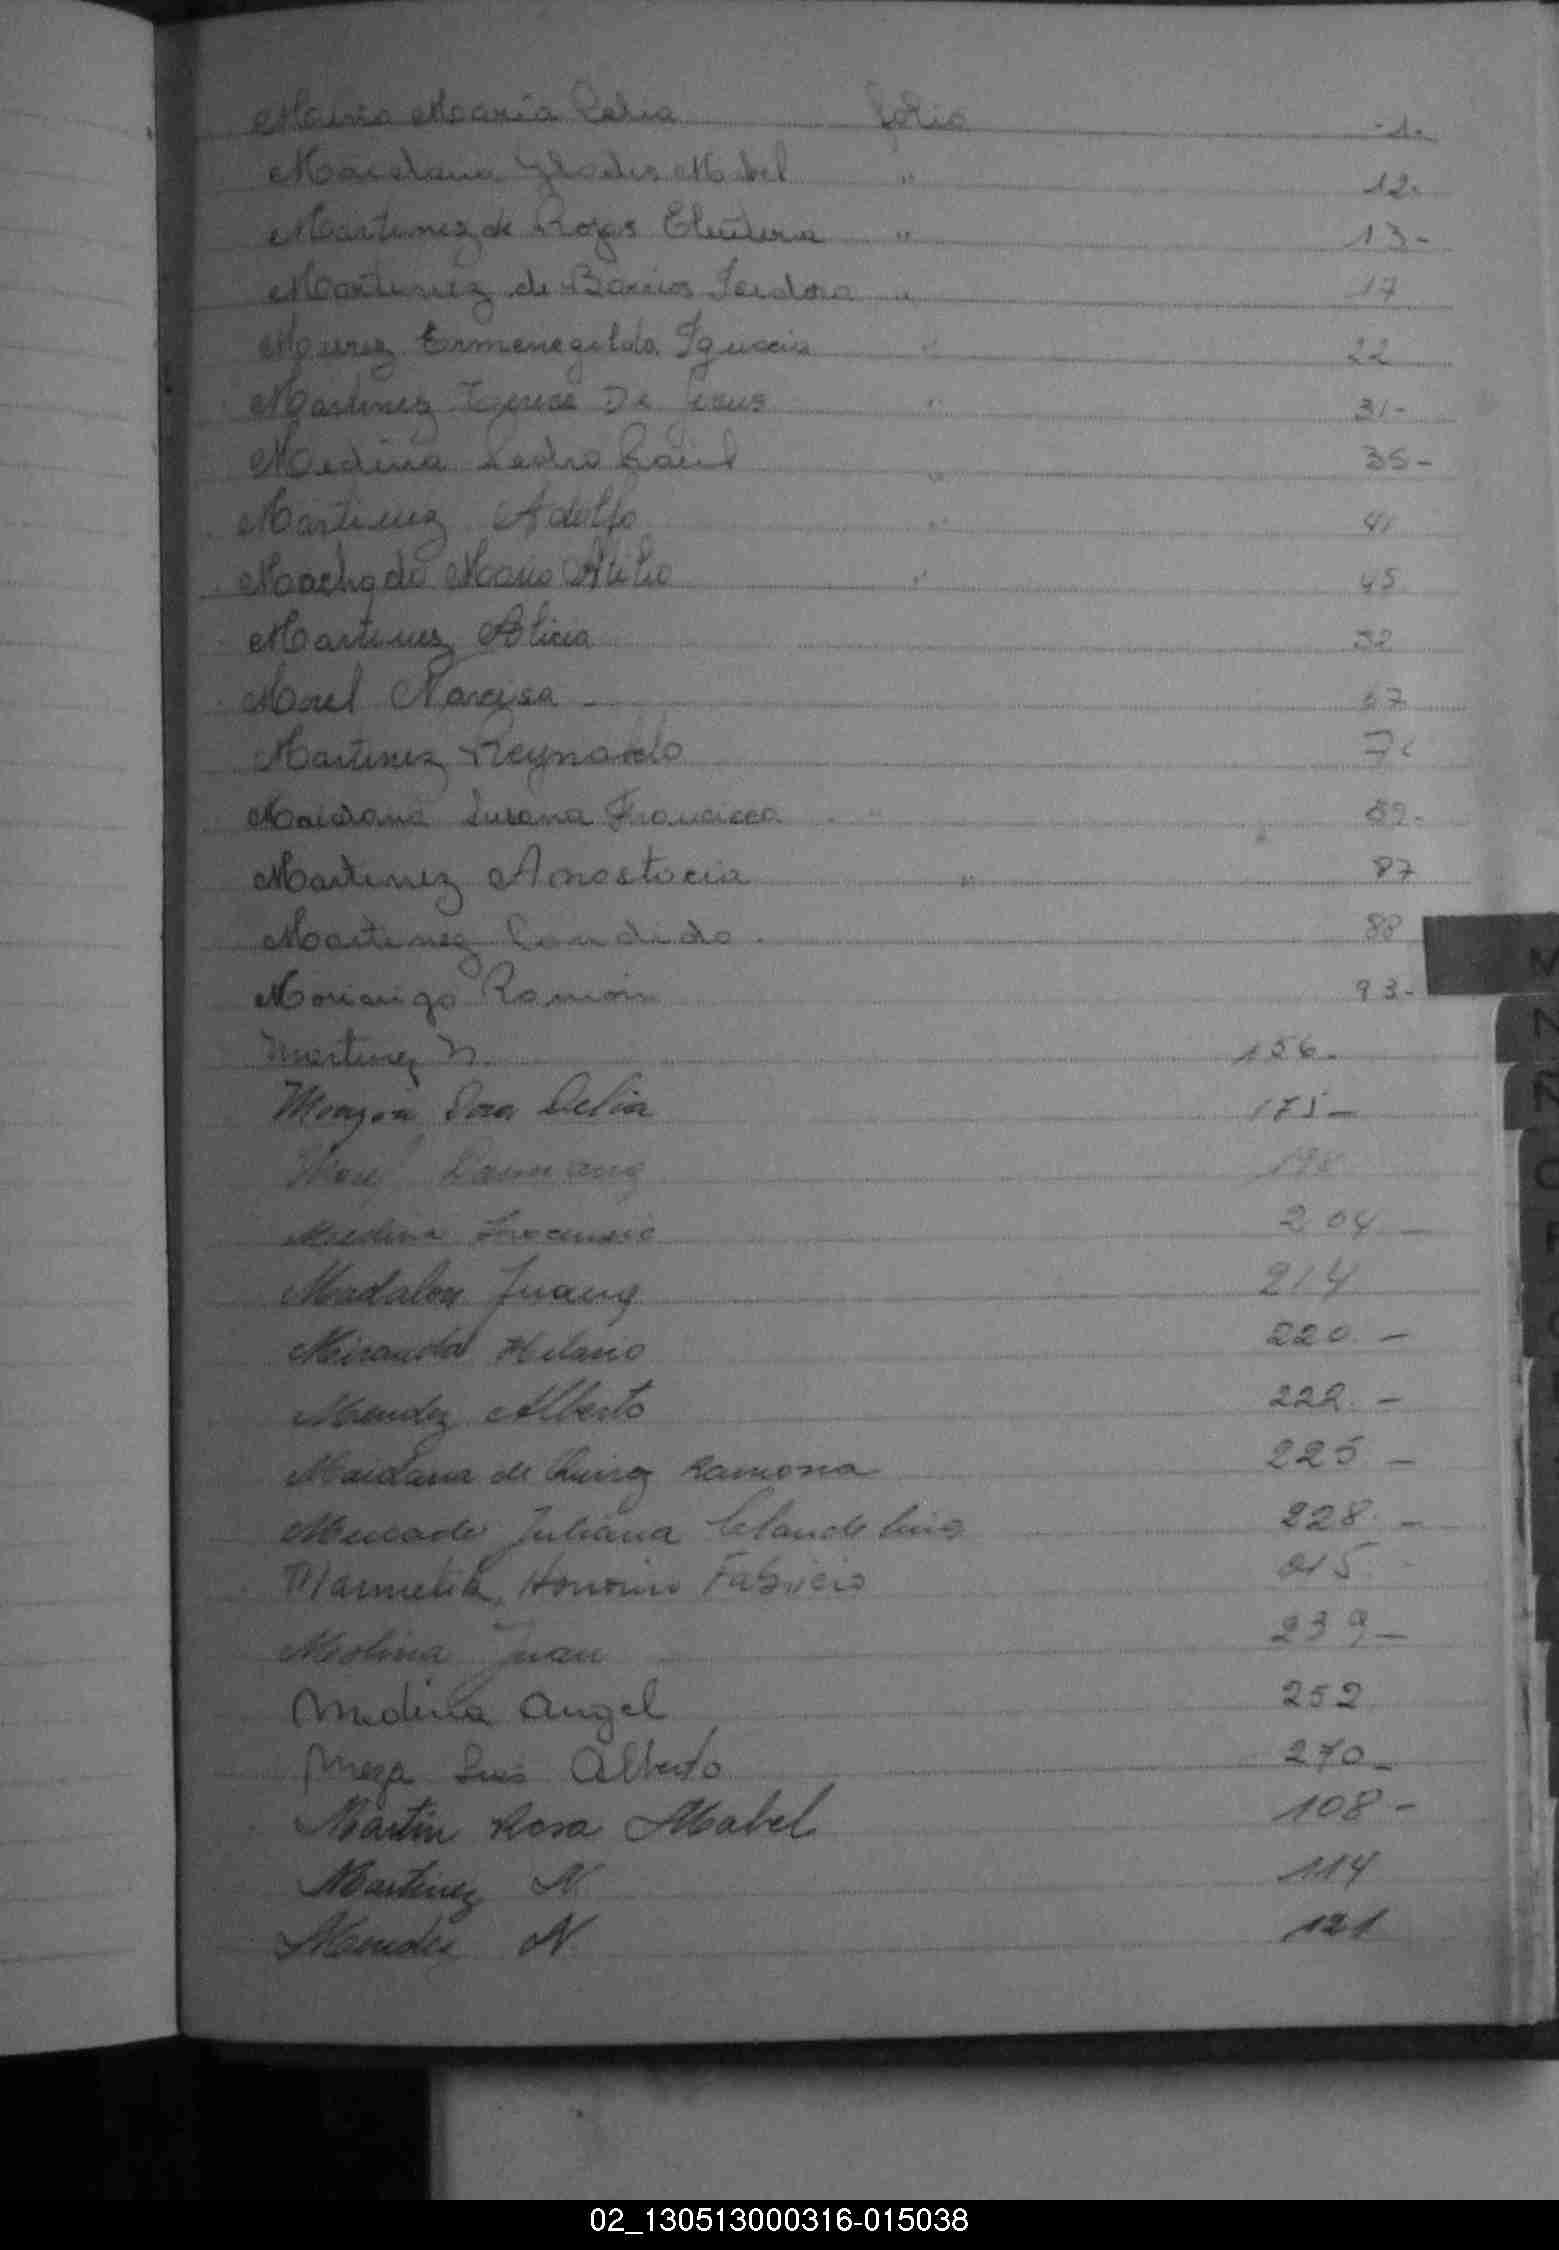 María folio -1.
Maidana Gladis Mabel " 12.
Martinez de Rojas Eleutera " 13-
Martinez de Barrios Isidora " 17
Ermenegilda Ignacia " 22
Martinez Teresa De Jesus " 31-
Medina Pedro Raúl " 35-
Martinez Adolfo " 41
Machado Mario Atilio " 45
Martinez Alicia 52
Morel Narcisa
Martinez Reynardo
Maidana Susana Francisca "
Martinez Anastacia " 87
Martinez Candido. 88
Morinigo Ramón 93-
Martinez N. 156.
Delia 175-
198
Medina Inocencio 204 -
Madalon 214
Miranda Hilario 220. -
Mendez Alberto 222. -
Maidana de Quiroz Ramona 225 -
Mercado Juliana Clandelina 228. -
Honorino Fabricio 015.
Molina Juan 239-
Medina Angel 252
Meza Luis Alberto 270-
Martin Rosa Mabel 108-
Martinez N. 114
Mendez N. 121
M
N
Ñ
O
P
02_130513000316-015038